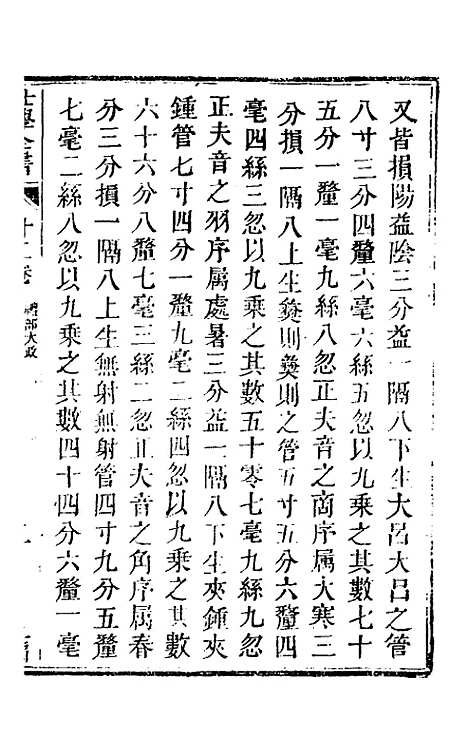 又皆損陽益陰三分益一隔八下生大呂大呂之管
八寸三分四釐六毫六絲五忽以九乘之其數七十
五分一釐一毫九絲八忽正夫音之商序属大寒三
分損一隔八上生㽔則㽔則之管五寸五分六釐四
毫四絲三忽以九乘之其數五十零七毫九絲九忽
正夫音之羽序属處暑三分益一隔八下生夾鍾夾
鍾管七寸四分一釐九毫二絲四忽以九乘之其數
六十六分八釐七毫三絲二忽正夫音之角序属春
分三分損一隔八上生無射無射管四寸九分五釐
七毫二絲八忽以九乘之其數四十四分六釐一毫
仕學全書 十二卷 禮部大政